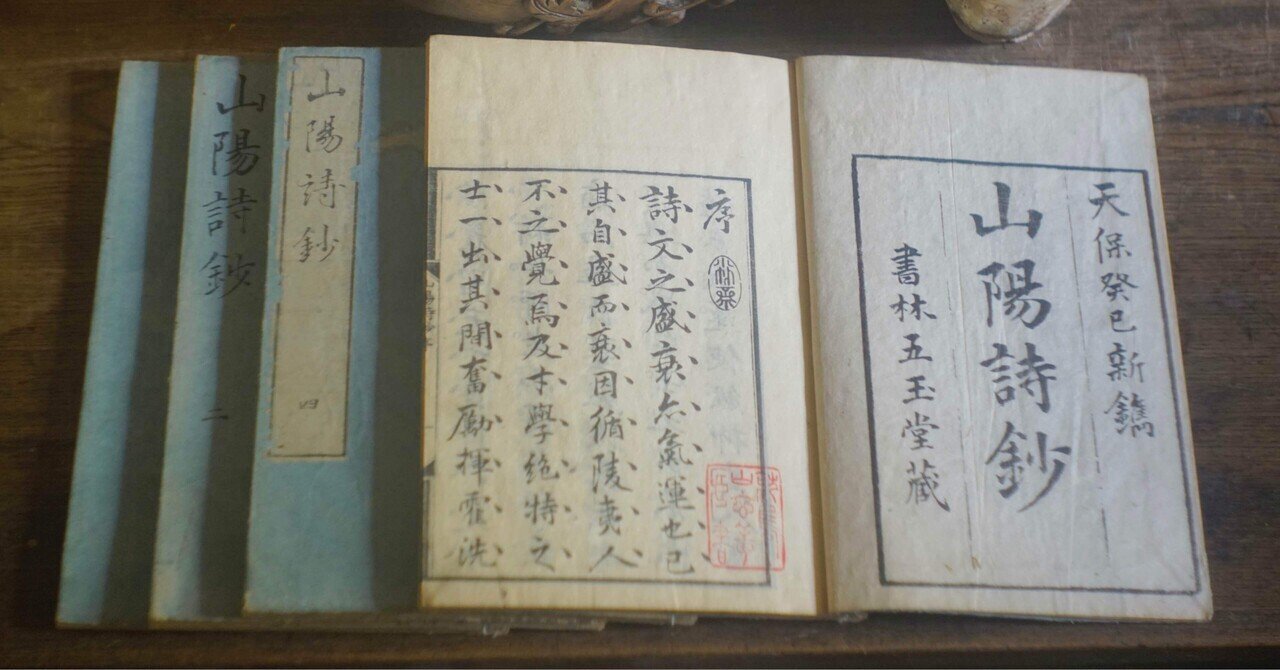 天保癸巳新鐫
山陽詩鈔
書林五玉堂藏
序
詩文之盛衰亦氣運也已
其自盛而衰因循陵夷人
不之覺焉及才學絶特之
士一出其間奮勵揮霍洗
山陽詩鈔
四
山陽詩鈔
二